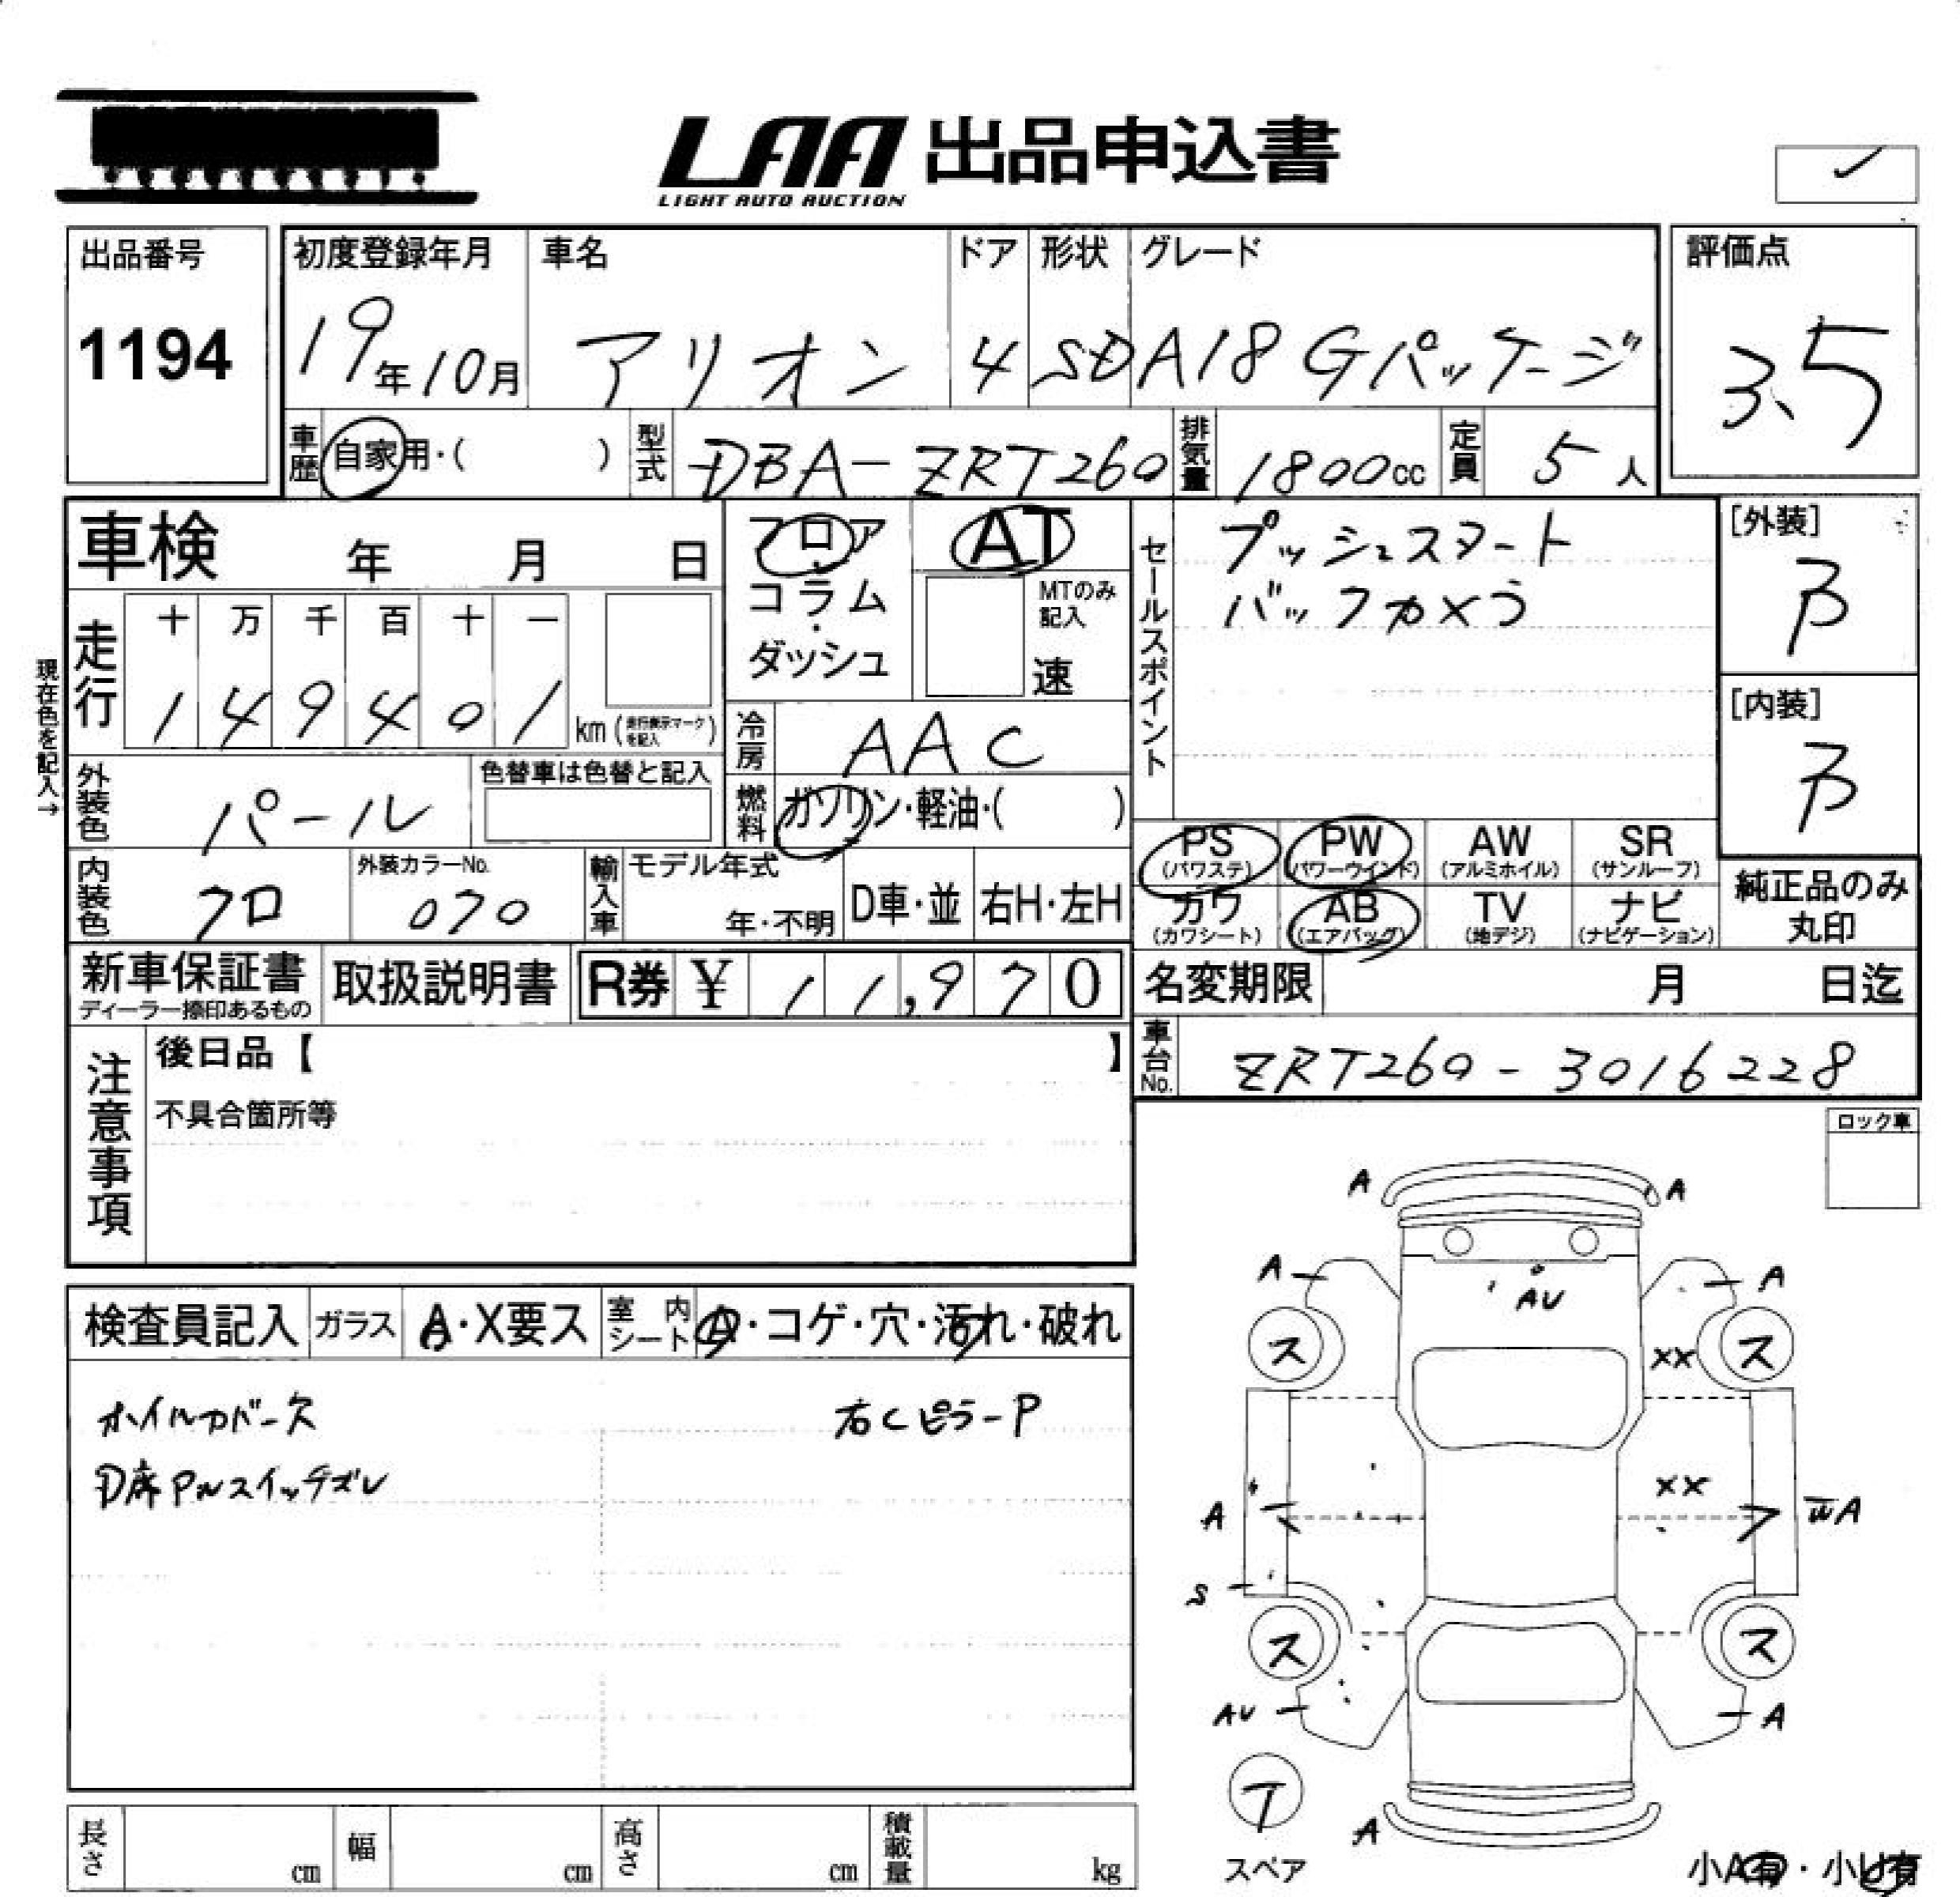 LAA 出品申込書
LIGHT AUTO AUCTION
出品番号
1194
初度登録年月
19年10月
車名
アリオン
ドア
4
形状
SD
グレード
A18 Gパッケージ
評価点
3.5
車歴
自家用・( )
型式
DBA-ZRT260
排気量
1800cc
定員
5人
車検 年 月 日
フロア
コラム
・
ダッシュ
AT
MTのみ
記入
速
セールスポイント
プッシュスタート
バックカメラ
[外装]
B
[内装]
B
現在色を記入→
走行
十 万 千 百 十 一
1 4 9 4 0 1 km (走行表示マークを記入)
冷房
AAC
外装色
パール
色替車は色替と記入
燃料
ガソリン・軽油・( )
PS
(パワステ)
PW
(パワーウインド)
AW
(アルミホイル)
SR
(サンルーフ)
内装色
クロ
外装カラーNo.
070
輸入車
モデル年式
年・不明
D車・並
右H・左H
カワ
(カワシート)
AB
(エアバッグ)
TV
(地デジ)
ナビ
(ナビゲーション)
純正品のみ
丸印
新車保証書
ディーラー捺印あるもの
取扱説明書
R券 ¥ 11,970
名変期限 月 日迄
車台No.
ZRT260-3016228
注意事項
後日品【 】
不具合箇所等
ロック車
検査員記入
ガラス
A・X要ス
室内
シート
A・コゲ・穴・汚れ・破れ
ホイルカバー欠
右CピラーP
D席PWスイッチズレ
A A
A A
AU
ス XX ス
XX
A WA
S
ス ス
AU A
T
A
スペア
長さ cm
幅 cm
高さ cm
積載量 kg
小A有・小U有